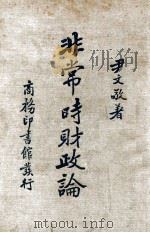 尹文敬著
非常時財政論
商務印書館發行